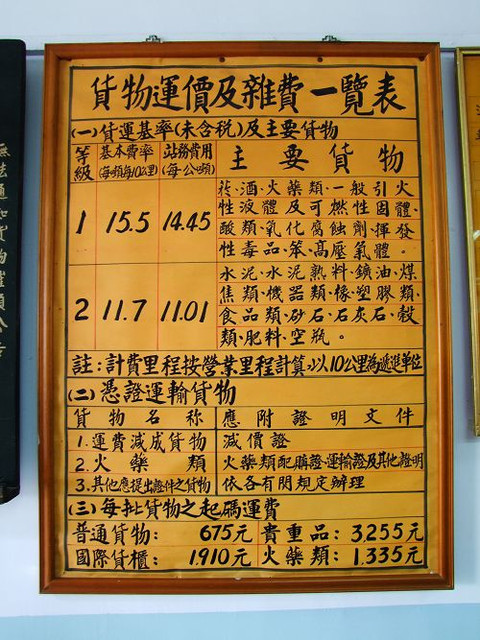 貨物運價及雜費一覽表
(一)貨運基率(未含稅)及主要貨物
等級 基本費率(每噸每10公里) 站務費用(每公噸) 主要貨物
1 15.5 14.45
菸、酒、火藥類、一般引火
性液體及可燃性固體、
酸類、氧化腐蝕劑、揮發
性毒品、苯、高壓氣體。
2 11.7 11.01
水泥、水泥熟料、鑛油、煤
焦類、機器類、橡塑膠類、
食品類、砂石、石灰石、穀
類、肥料、空瓶。
註:計費里程按營業里程計算,以10公里為遞進單位
(二)憑證運輸貨物
貨物名稱 應附證明文件
1.運費減成貨物 減價證
2.火藥類 火藥類配購證、運輸證及其他證明
3.其他應提出證件之貨物 依各有関規定辦理
(三)每批貨物之起碼運費
普通貨物: 675元 貴重品: 3,255元
國際貨櫃: 1,910元 火藥類: 1,335元